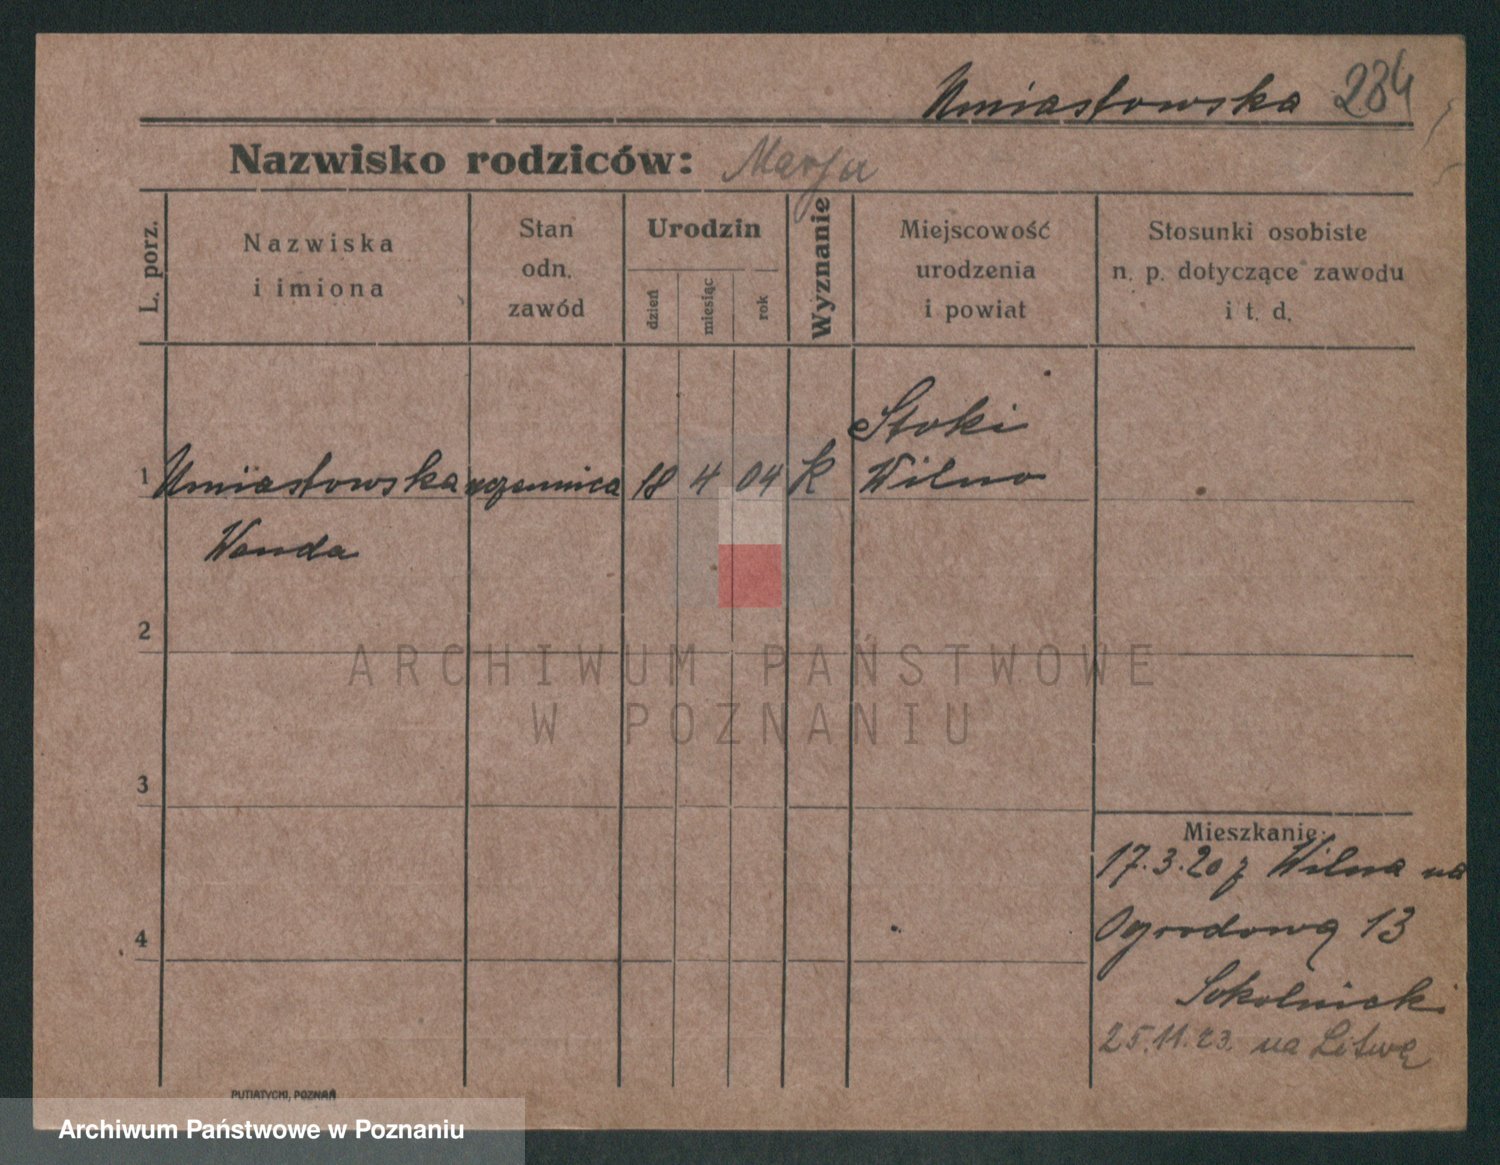 Umiastowska 284
Nazwisko rodziców: Marja
L. porz.
Nazwiska
i imiona
Stan
odn.
zawód
Urodzin
dzień
miesiąc
rok
Wyznanie
Miejscowość
urodzenia
i powiat
Stosunki osobiste
n. p. dotyczące zawodu
i t. d.
Stoki
1 Umiastowska uczennica 18 4 04 k Wilno
Wanda
2
ARCHIWUM PAŃSTWOWE
W POZNANIU
3
Mieszkanie:
17.3.20 z Wilna na
4
Ogrodową 13
Sokolnicki
25.11.23. na Litwę
PUTIATYCKI, POZNAŃ
Archiwum Państwowe w Poznaniu